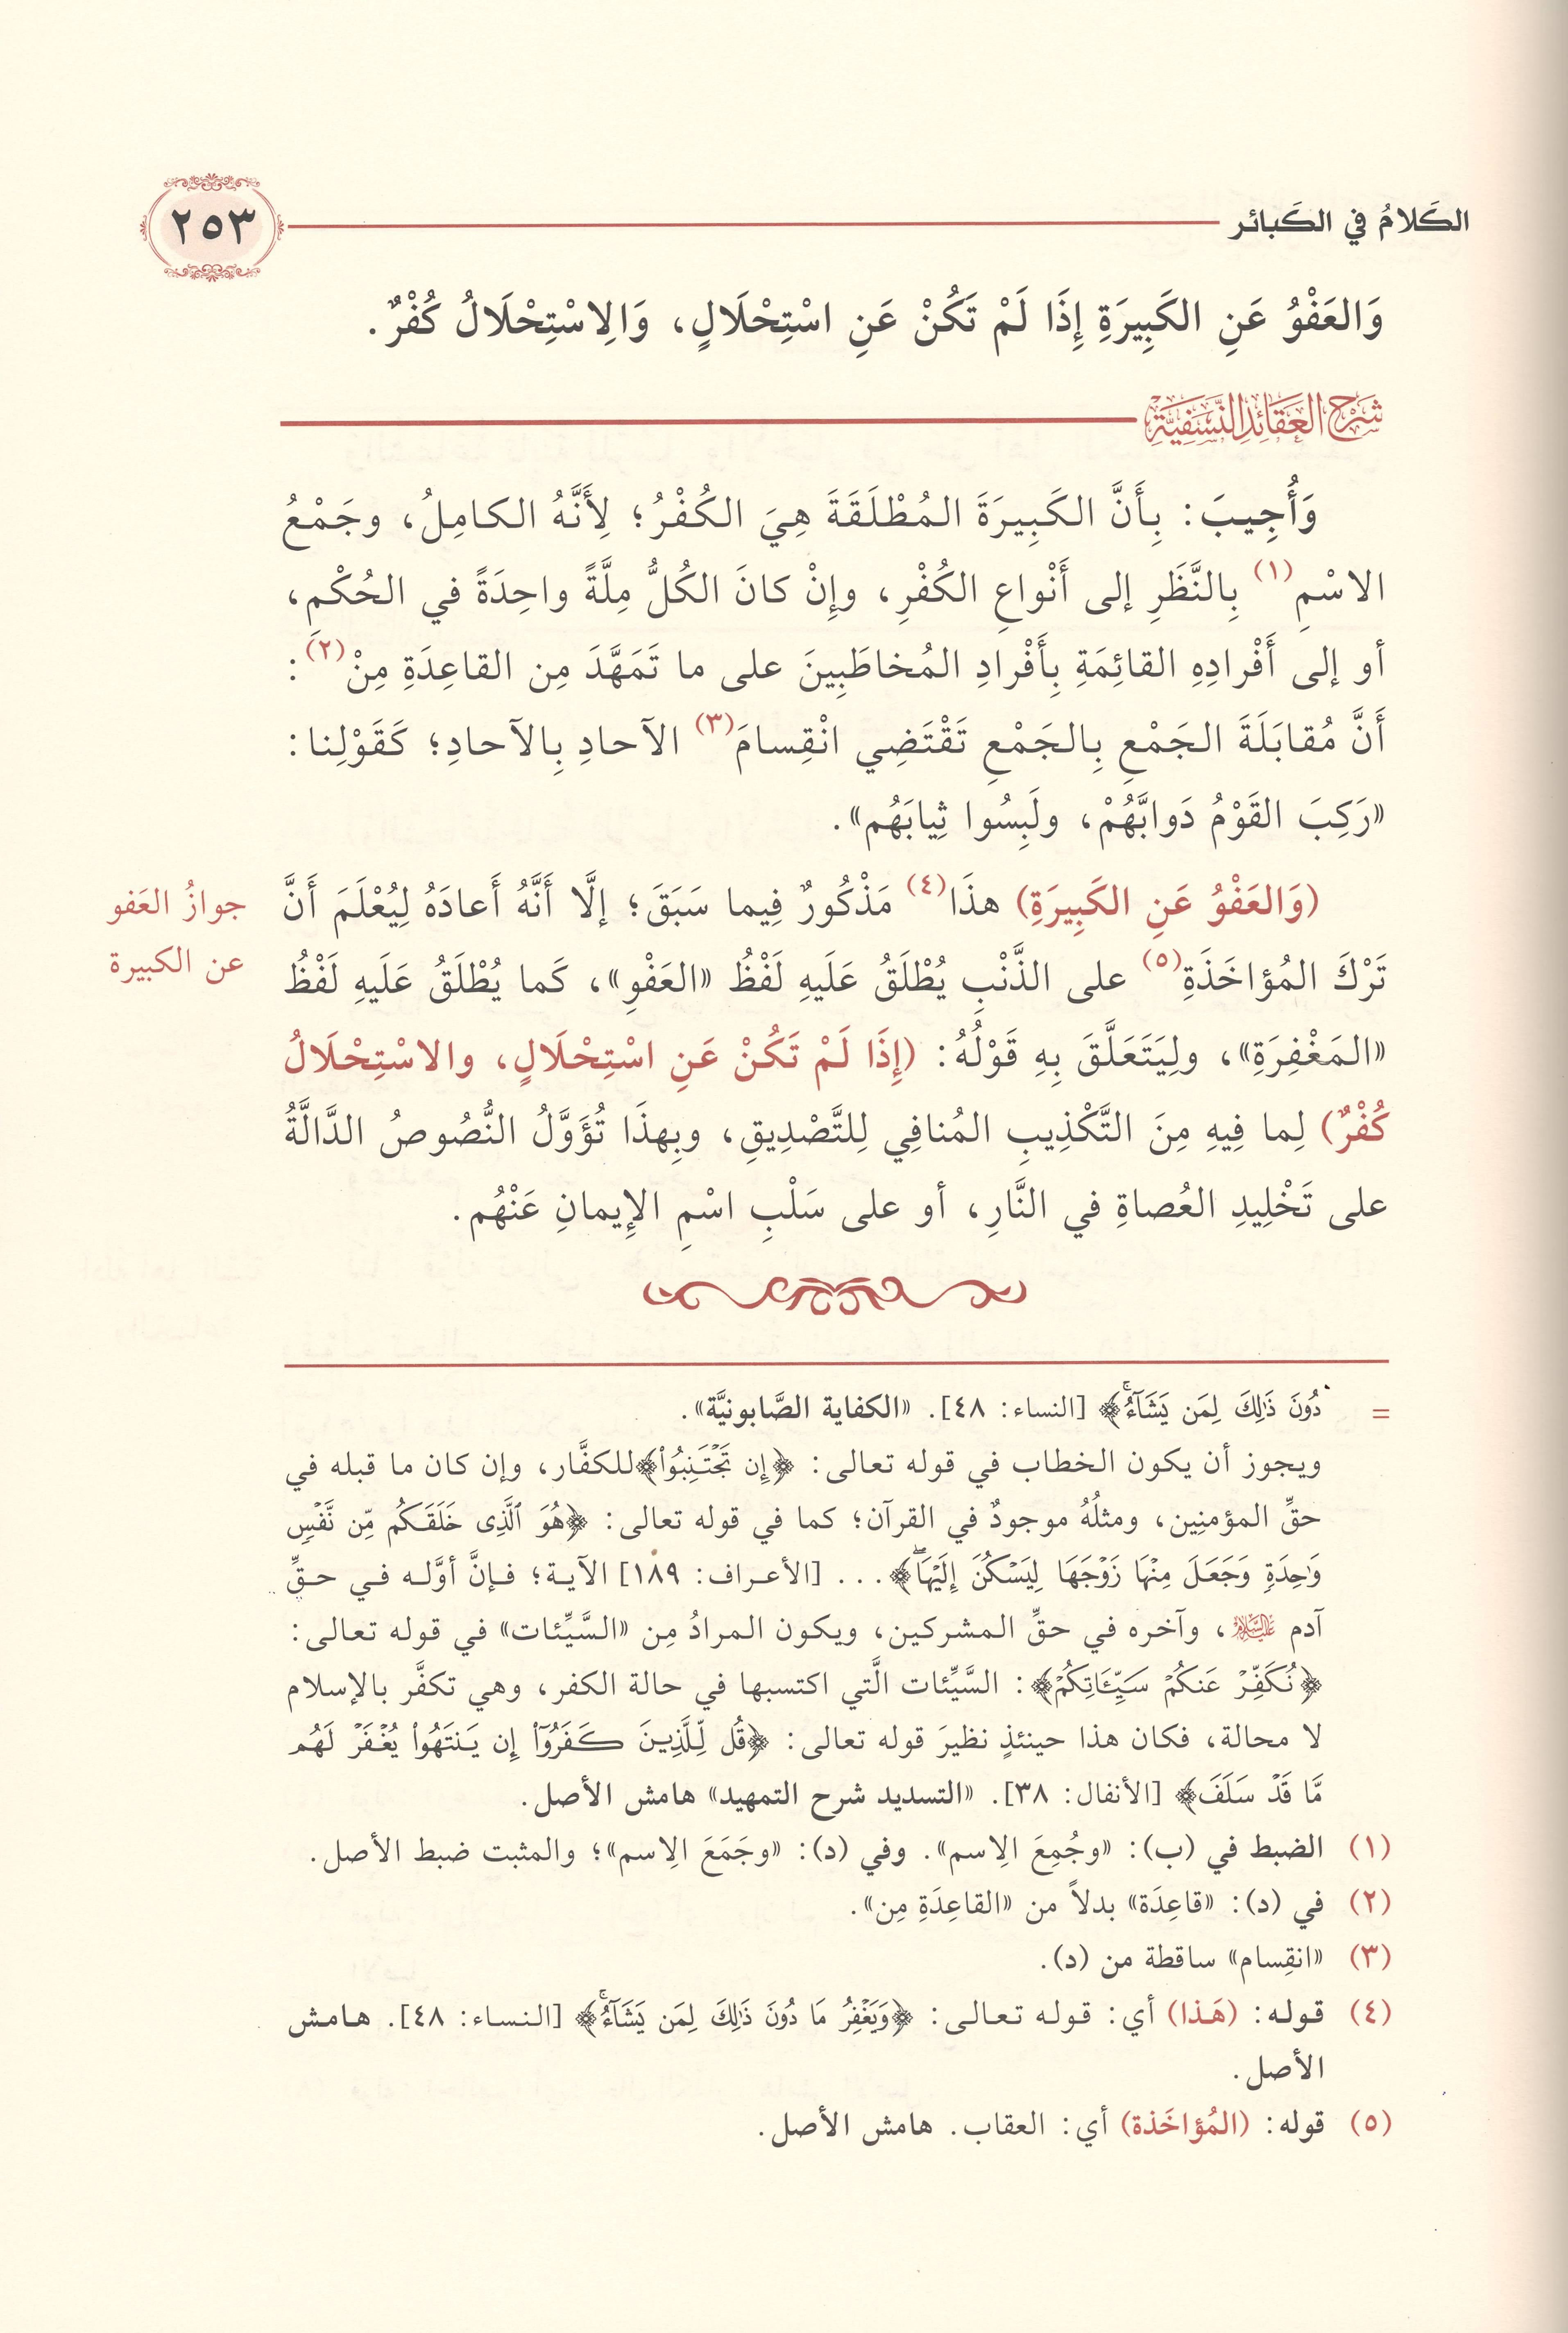 الكَلامُ في الكَبائر
٢٥٣
وَالعَفْوُ عَنِ الكَبِيرَةِ إِذَا لَمْ تَكُنْ عَنِ اسْتِحْلَالٍ، وَالِاسْتِحْلَالُ كُفْرٌ.
شَرْحُ العَقَائِدِ النَّسَفِيَّةِ
وَأُجِيبَ: بِأَنَّ الكَبِيرَةَ المُطْلَقَةَ هِيَ الكُفْرُ؛ لِأَنَّهُ الكامِلُ، وجَمْعُ
الاسْمِ(١) بِالنَّظَرِ إلى أَنْواعِ الكُفْرِ، وإِنْ كانَ الكُلُّ مِلَّةً واحِدَةً في الحُكْمِ،
أو إلى أَفْرادِهِ القائِمَةِ بِأَفْرادِ المُخاطَبِينَ على ما تَمَهَّدَ مِن القاعِدَةِ مِنْ(٢):
أَنَّ مُقابَلَةَ الجَمْعِ بِالجَمْعِ تَقْتَضِي انْقِسامَ(٣) الآحادِ بِالآحادِ؛ كَقَوْلِنا:
«رَكِبَ القَوْمُ دَوابَّهُمْ، ولَبِسُوا ثِيابَهُم».
(وَالعَفْوُ عَنِ الكَبِيرَةِ) هذَا(٤) مَذْكُورٌ فِيما سَبَقَ؛ إلَّا أَنَّهُ أَعادَهُ لِيُعْلَمَ أَنَّ
جوازُ العَفو
عن الكبيرة
تَرْكَ المُؤاخَذَةِ(٥) على الذَّنْبِ يُطْلَقُ عَلَيهِ لَفْظُ «العَفْوِ»، كَما يُطْلَقُ عَلَيهِ لَفْظُ
«المَغْفِرَةِ»، ولِيَتَعَلَّقَ بِهِ قَوْلُهُ: (إِذَا لَمْ تَكُنْ عَنِ اسْتِحْلَالٍ، والاسْتِحْلَالُ
كُفْرٌ) لِما فِيهِ مِنَ التَّكْذِيبِ المُنافِي لِلتَّصْدِيقِ، وبِهذَا تُؤَوَّلُ النُّصُوصُ الدَّالَّةُ
على تَخْلِيدِ العُصاةِ في النَّارِ، أو على سَلْبِ اسْمِ الإِيمانِ عَنْهُم.
= دُونَ ذَٰلِكَ لِمَن يَشَآءُۚ﴾ [النساء: ٤٨]. «الكفاية الصَّابونيَّة».
ويجوز أن يكون الخطاب في قوله تعالى: ﴿إِن تَجۡتَنِبُواْ﴾للكفَّار، وإن كان ما قبله في
حقِّ المؤمنِين، ومثلُهُ موجودٌ في القرآن؛ كما في قوله تعالى: ﴿هُوَ ٱلَّذِى خَلَقَكُم مِّن نَّفۡسٍ
وَٰحِدَةٖ وَجَعَلَ مِنۡهَا زَوۡجَهَا لِيَسۡكُنَ إِلَيۡهَاۖ﴾... [الأعراف: ١٨٩] الآية؛ فإنَّ أوَّله في حقِّ
آدم عليه السلام، وآخره في حقِّ المشركين، ويكون المرادُ مِن «السَّيِّئات» في قوله تعالى:
﴿نُكَفِّرۡ عَنكُمۡ سَيِّـَٔاتِكُمۡ﴾: السَّيِّئات الَّتي اكتسبها في حالة الكفر، وهي تكفَّر بالإسلام
لا محالة، فكان هذا حينئذٍ نظيرَ قوله تعالى: ﴿قُل لِّلَّذِينَ كَفَرُوٓاْ إِن يَنتَهُواْ يُغۡفَرۡ لَهُم
مَّا قَدۡ سَلَفَ﴾ [الأنفال: ٣٨]. «التسديد شرح التمهيد» هامش الأصل.
(١) الضبط في (ب): «وجُمِعَ الِاسم». وفي (د): «وجَمَعَ الِاسم»؛ والمثبت ضبط الأصل.
(٢) في (د): «قاعِدَة» بدلاً من «القاعِدَةِ مِن».
(٣) «انقِسام» ساقطة من (د).
(٤) قوله: (هَذا) أي: قوله تعالى: ﴿وَيَغۡفِرُ مَا دُونَ ذَٰلِكَ لِمَن يَشَآءُۚ﴾ [النساء: ٤٨]. هامش
الأصل.
(٥) قوله: (المُؤاخَذة) أي: العقاب. هامش الأصل.